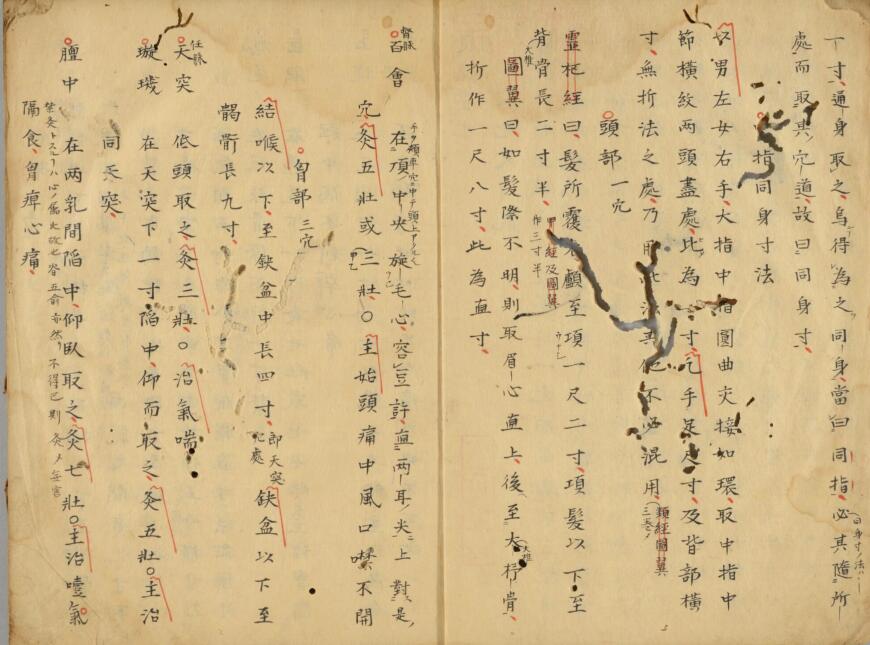 一寸、通身取之、烏得為之同身、當曰同指、必其隨所
處而取其穴道、故曰同身寸、
指同身寸法
男左女右手大指中指圓曲交接如環、取中指中
節橫紋兩頭盡處、比為一寸、凡手足尺寸、及背部橫
寸、無折法之處、乃用此法、其他不必混用、
類經圖翼
三巻
頭部 一穴
靈枢經曰、髮所覆者、顱至項一尺二寸、項髮以下至
背骨長二寸半、
甲乙經及圖翼
作三寸半
圖翼曰、如髮際不明、則取眉心直上、後至大杼骨、
大椎
折作一尺八寸、此為直寸、
督脉
百會 在頂中央旋毛心、容豈許、直兩耳尖上對是
穴、灸五壯或三壯、○主始頭痛中風口噤不開
胷部 三穴
結喉以下、至缺盆中長四寸、
即天突
穴處
缺盆以下至
𩩲骬長九寸、
任脉
天突 低頭取之、灸三壯、○治氣喘、
璇璣 在天突下一寸陷中、仰而取之、灸五壯、○主治
同天突、
膻中 在兩乳間陷中、仰臥取之、灸七壯、○主治噎氣
隔食、胷痺心痛、